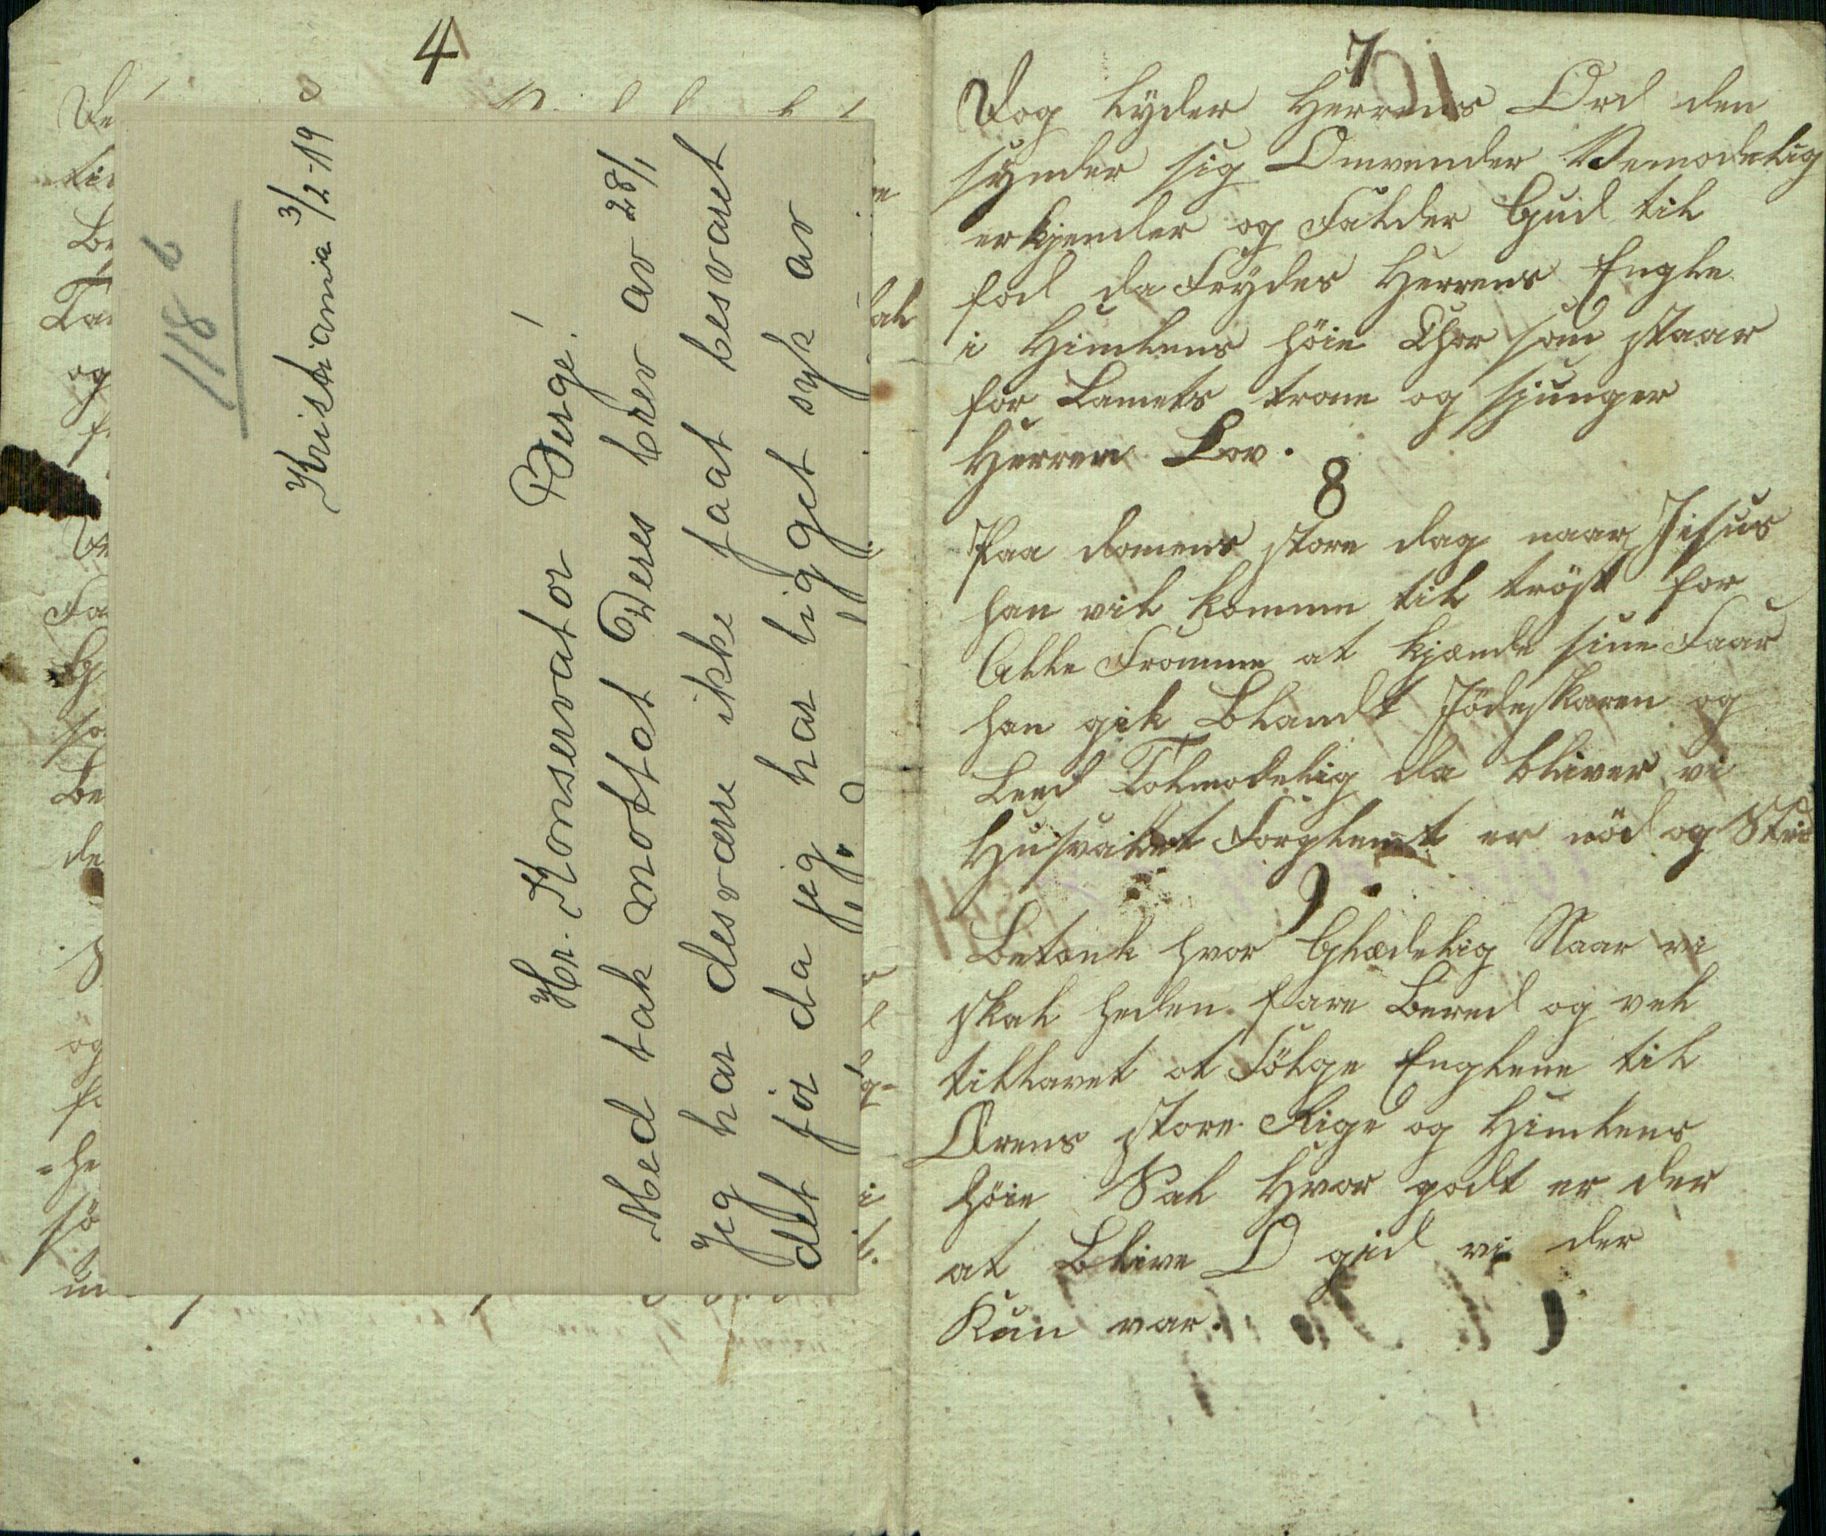 4
118 b
Kristiania 3/2-19
Hr. Konservator Berge!
Med tak mottat Deres brev av 28/1
Jeg har desværre ikke faat besvaret
det før da jeg har ligget syk av
7
Dog lyder Herrens Ord den
synder sig Omvender Vemodelig
erkjender og Falder Gud til
fod da Frydes Herrens Engle
i Himlens høie Chor som staar
for Lamets trone og sjunger
Herren Lov.
8
Paa domens store dag naar Jesus
han vil komme til trøst for
Alle Fromme at kjænde sine Faar
han gik Blandt Jødeskaren og
Leed Tolmodelig da bliver vi
Husvalet Forglemt er nød og
9
Betænk hvor Glædelig Naar vi
skal heden fare Bered og vel
tillavet at Følge Englene til
Ærens store Rige og Himlens
høie Sal Hvor godt er der
at Blive O gid vi der
Kun var.